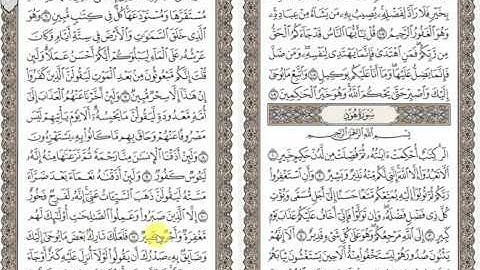 بِخَيْرٍ فَلَا رَآدَّ لِفَضْلِهِۦ يُصِيبُ بِهِۦ مَن يَشَآءُ مِنْ عِبَادِهِۦ وَهُوَ
ٱلْغَفُورُ ٱلرَّحِيمُ ١٠٧ قُلْ يَٰٓأَيُّهَا ٱلنَّاسُ قَدْ جَآءَكُمُ ٱلْحَقُّ
مِن رَّبِّكُمْ فَمَنِ ٱهْتَدَىٰ فَإِنَّمَا يَهْتَدِى لِنَفْسِهِۦ وَمَن ضَلَّ
فَإِنَّمَا يَضِلُّ عَلَيْهَا وَمَآ أَنَا۠ عَلَيْكُم بِوَكِيلٍ ١٠٨ وَٱتَّبِعْ مَا يُوحَىٰٓ
إِلَيْكَ وَٱصْبِرْ حَتَّىٰ يَحْكُمَ ٱللَّهُ وَهُوَ خَيْرُ ٱلْحَٰكِمِينَ ١٠٩
سُورَةُ هُودٍ
بِسْمِ ٱللَّهِ ٱلرَّحْمَٰنِ ٱلرَّحِيمِ
الٓر كِتَٰبٌ أُحْكِمَتْ ءَايَٰتُهُۥ ثُمَّ فُصِّلَتْ مِن لَّدُنْ حَكِيمٍ خَبِيرٍ ١
أَلَّا تَعْبُدُوٓا۟ إِلَّا ٱللَّهَ إِنَّنِى لَكُم مِّنْهُ نَذِيرٌ وَبَشِيرٌ ٢ وَأَنِ ٱسْتَغْفِرُوا۟
رَبَّكُمْ ثُمَّ تُوبُوٓا۟ إِلَيْهِ يُمَتِّعْكُم مَّتَٰعًا حَسَنًا إِلَىٰٓ أَجَلٍ مُّسَمًّى وَيُؤْتِ
كُلَّ ذِى فَضْلٍ فَضْلَهُۥ وَإِن تَوَلَّوْا۟ فَإِنِّىٓ أَخَافُ عَلَيْكُمْ عَذَابَ يَوْمٍ
كَبِيرٍ ٣ إِلَى ٱللَّهِ مَرْجِعُكُمْ وَهُوَ عَلَىٰ كُلِّ شَىْءٍ قَدِيرٌ ٤ أَلَآ إِنَّهُمْ
مُسْتَقَرَّهَا وَمُسْتَوْدَعَهَا كُلٌّ فِى كِتَٰبٍ مُّبِينٍ ٦ وَهُوَ
ٱلَّذِى خَلَقَ ٱلسَّمَٰوَٰتِ وَٱلْأَرْضَ فِى سِتَّةِ أَيَّامٍ وَكَانَ
عَرْشُهُۥ عَلَى ٱلْمَآءِ لِيَبْلُوَكُمْ أَيُّكُمْ أَحْسَنُ عَمَلًا وَلَئِن
قُلْتَ إِنَّكُم مَّبْعُوثُونَ مِنۢ بَعْدِ ٱلْمَوْتِ لَيَقُولَنَّ ٱلَّذِينَ كَفَرُوٓا۟
إِنْ هَٰذَآ إِلَّا سِحْرٌ مُّبِينٌ ٧ وَلَئِنْ أَخَّرْنَا عَنْهُمُ ٱلْعَذَابَ إِلَىٰٓ
أُمَّةٍ مَّعْدُودَةٍ لَّيَقُولُنَّ مَا يَحْبِسُهُۥٓ أَلَا يَوْمَ يَأْتِيهِمْ لَيْسَ
مَصْرُوفًا عَنْهُمْ وَحَاقَ بِهِم مَّا كَانُوا۟ بِهِۦ يَسْتَهْزِءُونَ
٨ وَلَئِنْ أَذَقْنَا ٱلْإِنسَٰنَ مِنَّا رَحْمَةً ثُمَّ نَزَعْنَٰهَا مِنْهُ إِنَّهُۥ
لَيَـُٔوسٌ كَفُورٌ ٩ وَلَئِنْ أَذَقْنَٰهُ نَعْمَآءَ بَعْدَ ضَرَّآءَ
مَسَّتْهُ لَيَقُولَنَّ ذَهَبَ ٱلسَّيِّـَٔاتُ عَنِّىٓ إِنَّهُۥ لَفَرِحٌ فَخُورٌ
١٠ إِلَّا ٱلَّذِينَ صَبَرُوا۟ وَعَمِلُوا۟ ٱلصَّٰلِحَٰتِ أُو۟لَٰٓئِكَ لَهُم
مَّغْفِرَةٌ وَأَجْرٌ كَبِيرٌ ١١ فَلَعَلَّكَ تَارِكٌۢ بَعْضَ مَا يُوحَىٰٓ إِلَيْكَ
وَضَآئِقٌۢ بِهِۦ صَدْرُكَ أَن يَقُولُوا۟ لَوْلَآ أُنزِلَ عَلَيْهِ كَنزٌ أَوْ جَآءَ